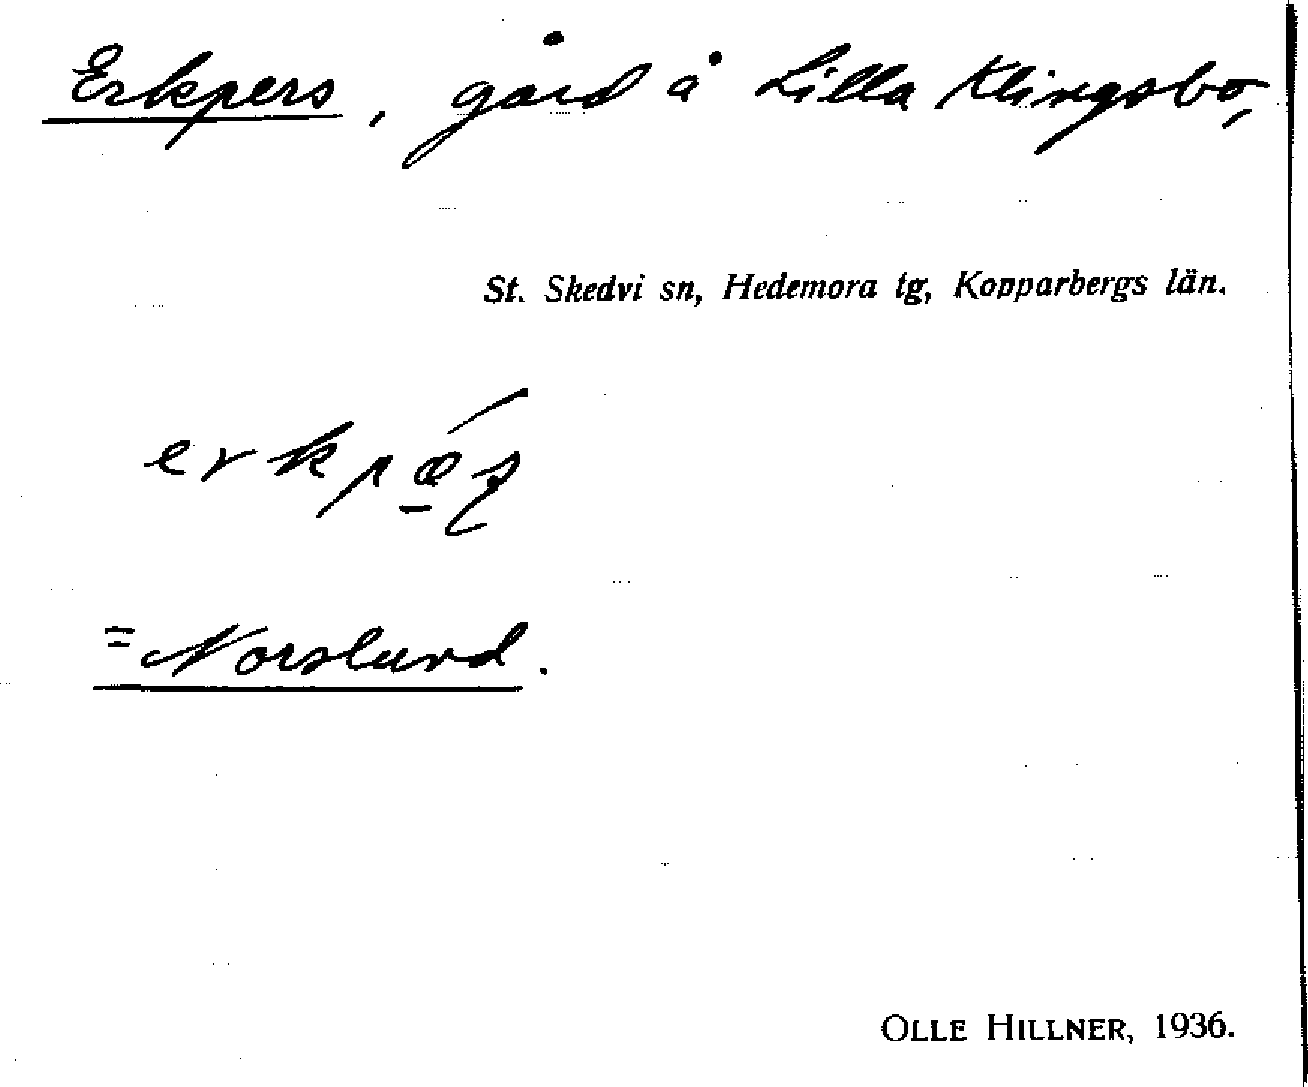 Erkpers, gård å Lilla Klingsbo,
St. Skedvi sn, Hedemora tg, Kopparbergs län.
= Norslund.
OLLE HILLNER, 1936.